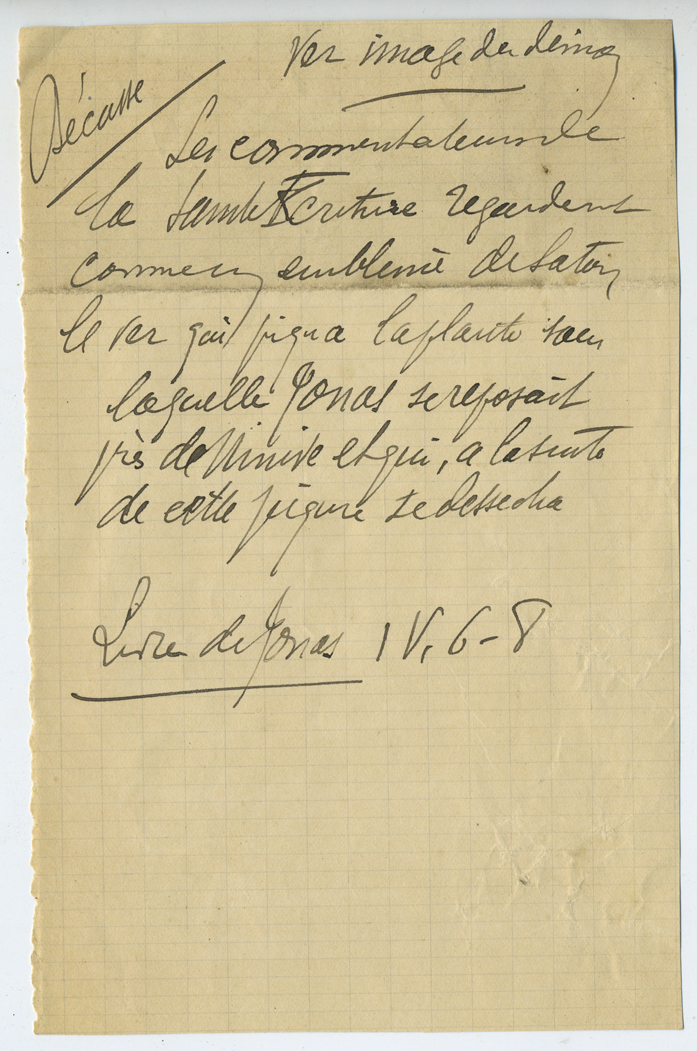 Ver image du démon
Bécasse
Les commentateurs de
la Sainte Ecriture regardent
comme un emblème de Satan
le ver qui piqua la plante sous
laquelle Jonas se reposait
près de Ninive et qui, a la suite
de cette piqure se dessecha
Livre de Jonas IV, 6-8